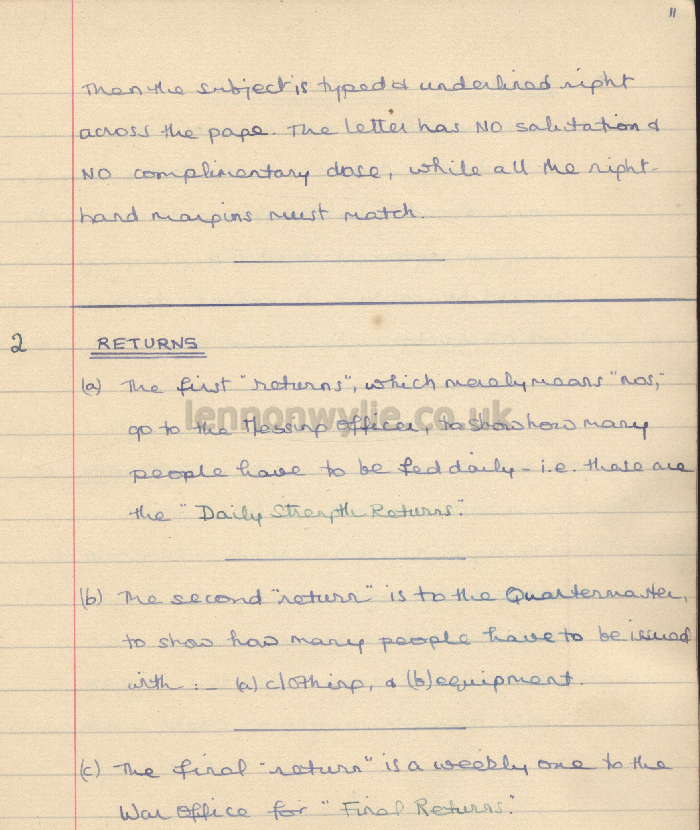 11
Then the subject is typed & underlined right
across the pape. The letter has NO salutation &
NO complimentary close, while all the right-
hand margins must match.
2 RETURNS
(a) The first "returns", which merely means "nos,"
lennonwylie.co.uk
go to the Messing Officer, to show how many
people have to be fed daily - i.e. these are
the "Daily Strength Returns."
(b) The second "return" is to the Quartermaster,
to show how many people have to be issued
with :- (a) clothing, & (b) equipment.
(c) The final "return" is a weekly one to the
War Office for "Final Returns."